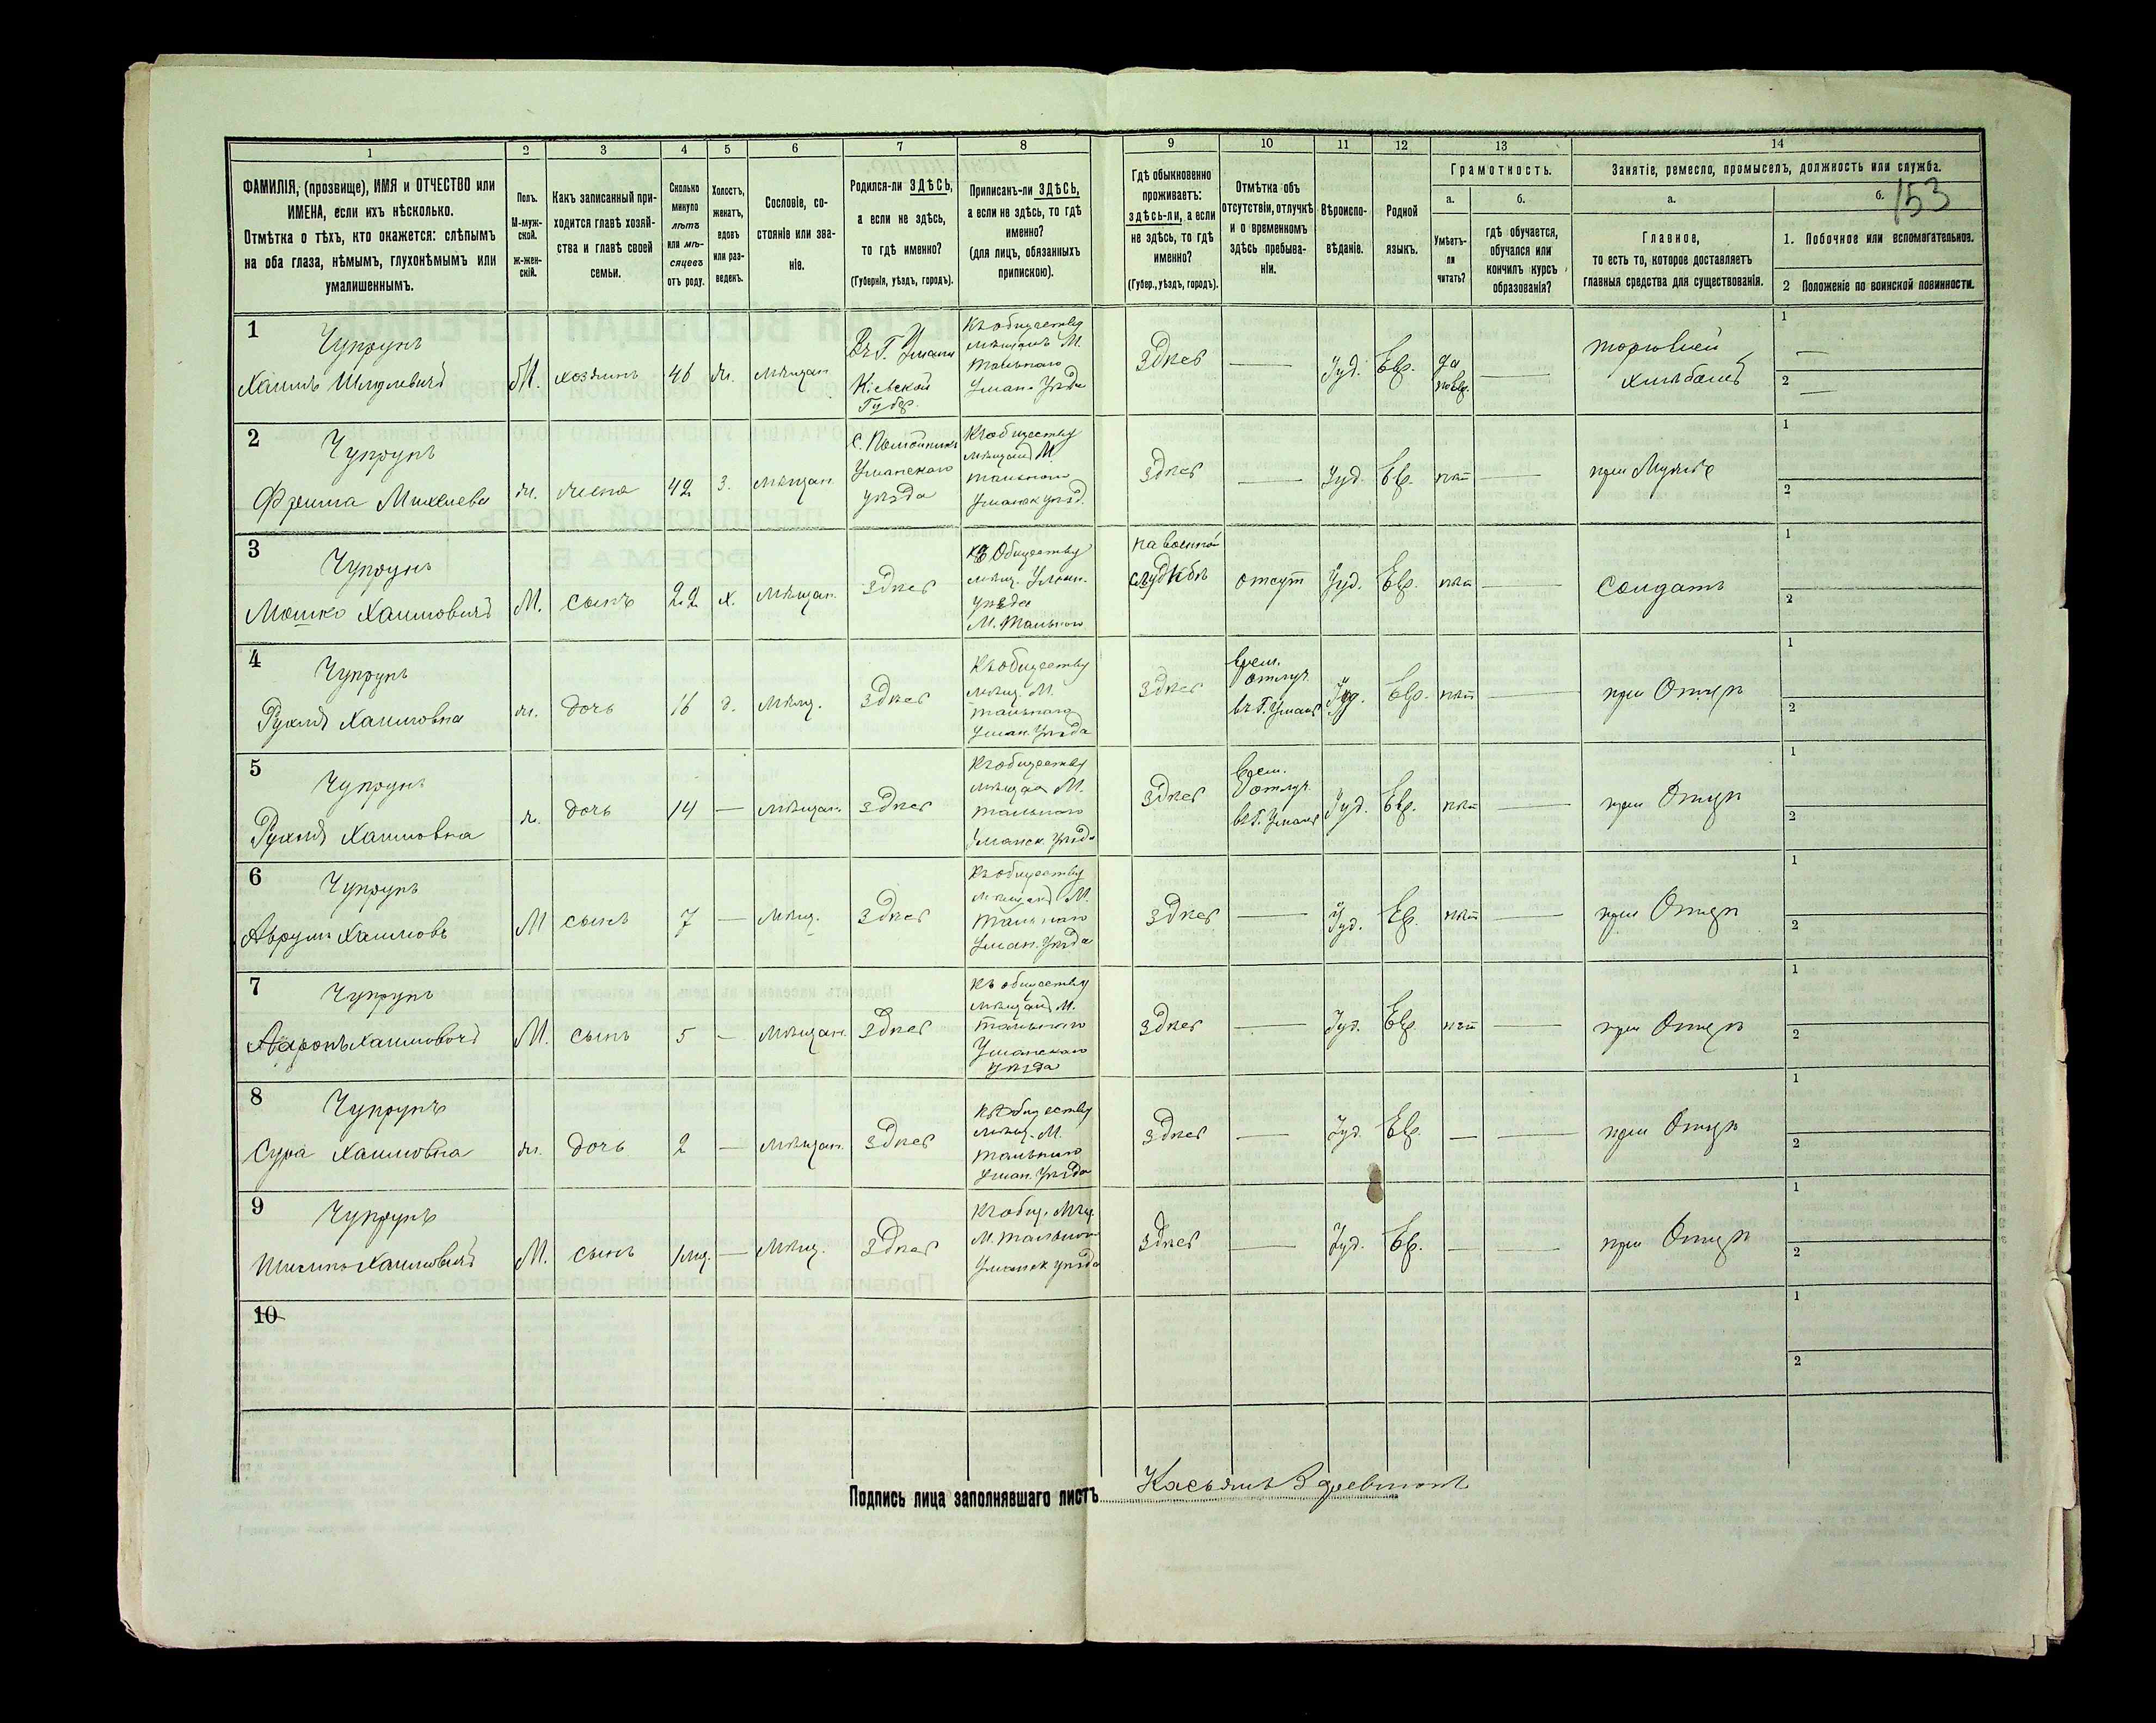 1 2 3 4 5 6 7 8 9 10 11 12 13 14
ФАМИЛІЯ, (прозвище), ИМЯ и ОТЧЕСТВО или
ИМЕНА, если ихъ нѣсколько.
Отмѣтка о тѣхъ, кто окажется: слѣпымъ
на оба глаза, нѣмымъ, глухонѣмымъ или
умалишеннымъ.
Полъ.
М-муж-
ской.
ж-жен-
скій.
Какъ записанный при-
ходится главѣ хозяй-
ства и главѣ своей
семьи.
Сколько
минуло
лѣтъ
или мѣ-
сяцевъ
отъ роду.
Холостъ,
женатъ,
вдовъ
или раз-
веденъ.
Сословіе, со-
стояніе или зва-
ніе.
Родился-ли ЗДѢСЬ,
а если не здѣсь,
то гдѣ именно?
(Губернія, уѣздъ, городъ).
Приписанъ-ли ЗДѢСЬ,
а если не здѣсь, то гдѣ
именно?
(для лицъ, обязанныхъ
припискою).
Гдѣ обыкновенно
проживаетъ:
здѣсь-ли, а если
не здѣсь, то гдѣ
именно?
(Губер., уѣздъ, городъ).
Отмѣтка объ
отсутствіи, отлучкѣ
и о временномъ
здѣсь пребыва-
ніи.
Вѣроиспо-
вѣданіе.
Родной
языкъ.
Грамотность.
а.
Умѣетъ-
ли
читать?
б.
гдѣ обучается,
обучался или
кончилъ курсъ
образованія?
Занятіе, ремесло, промыселъ, должность или служба.
а.
Главное,
то есть то, которое доставляетъ
главныя средства для существованія.
б.
153
1. Побочное или вспомагательное.
2 Положеніе по воинской повинности.
1
Чупрунъ
Хаимъ Шмулевичъ
М.
хозяинъ
46
ж.
мѣщан
Въ Г. Умани
Кіевской
Губер.
Къ обществу
мѣщанъ М.
Тального
Уман. Уѣзда
Здѣсь
—
Іуд.
Евр.
да
по евр.
—
торговлей
хлѣбомъ
1 —
2 —
2
Чупрунъ
Фрима
ж.
жена
42
З.
мѣщан.
Уманскаго
уѣзда
Къ обществу
мѣщанъ М
Тального
Уманск уѣзд.
здѣсь
—
Іуд.
Евр.
нѣт
—
при Мужѣ
1
2
3
Чупрунъ
Мошко Хаимовичъ
М.
сынъ
22
х.
мѣщан.
Здѣсь
Къ Обществу
мѣщ. Уман.
уѣзда
М. Тального
на военной
службѣ
отсут
Іуд.
Евр.
нѣт
—
Солдатъ
1
2
4
Чупрунъ
Рухля Хаимовна
ж.
дочь
16
д.
мѣщ.
здѣсь
Къ обществу
мѣщ. М.
Тального
Уман. Уѣзда
здѣсь
врем.
отлуч.
въ Г. Умань
Іуд.
Евр.
нѣт
—
при Отцѣ
1
2
5
Чупрунъ
Рухля Хаимовна
ж.
дочь
14
—
мѣщан.
здѣсь
Къ обществу
мѣщан М.
Тального
Уманск. Уѣзда
здѣсь
врем.
отлуч.
въ Г. Умань
Іуд.
Евр.
нѣт
—
при Отцѣ
1
2
6
Чупрунъ
Аврум Хаимовъ
М
сынъ
7
—
мѣщ.
здѣсь
Къ обществу
мѣщанъ М.
Тального
Уман. Уѣзда
здѣсь
—
Іуд.
Евр.
нѣт
—
при Отцѣ
1
2
7
Чупрунъ
Ааронъ Хаимовичъ
М.
сынъ
5
—
мѣщан.
здѣсь
Къ обществу
мѣщанъ М.
Тального
Уманскаго
уѣзда
здѣсь
—
Іуд.
Евр.
нѣт
—
при Отцѣ
1
2
8
Чупрунъ
Сура Хаимовна
ж.
дочь
2
—
мѣщан.
здѣсь
Къ обществу
мѣщ. М.
Тального
Уман. Уѣзда
здѣсь
—
Іуд.
Евр.
—
—
при Отцѣ
1
2
9
Чупрунъ
Хаимовичъ
М.
сынъ
1 мѣ.
—
мѣщ.
здѣсь
Къ общ. Мѣщ.
М. Тального
Уманск уѣзда
здѣсь
—
Іуд.
Евр.
—
—
при Отцѣ
1
2
10
1
2
Подпись лица заполнявшаго листъ